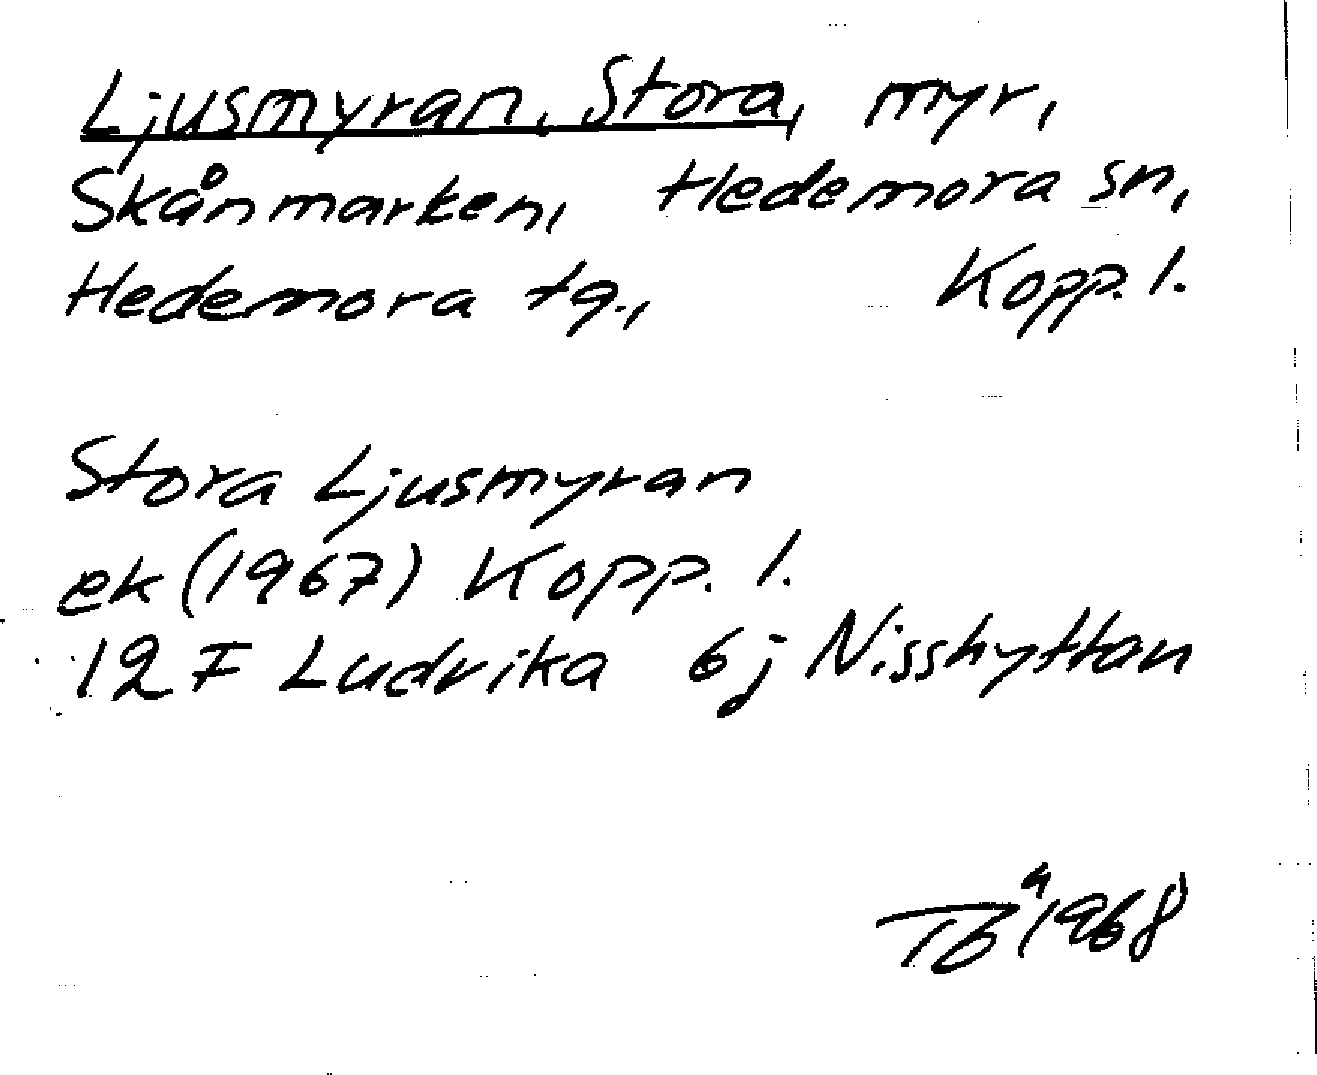 Ljusmyran, Stora, myr,
Skånmarken, Hedemora sn,
Hedemora tg., Kopp. l.
Stora Ljusmyran
ek (1967) Kopp. l.
12 F Ludvika 6 j Nisshyttan
1968